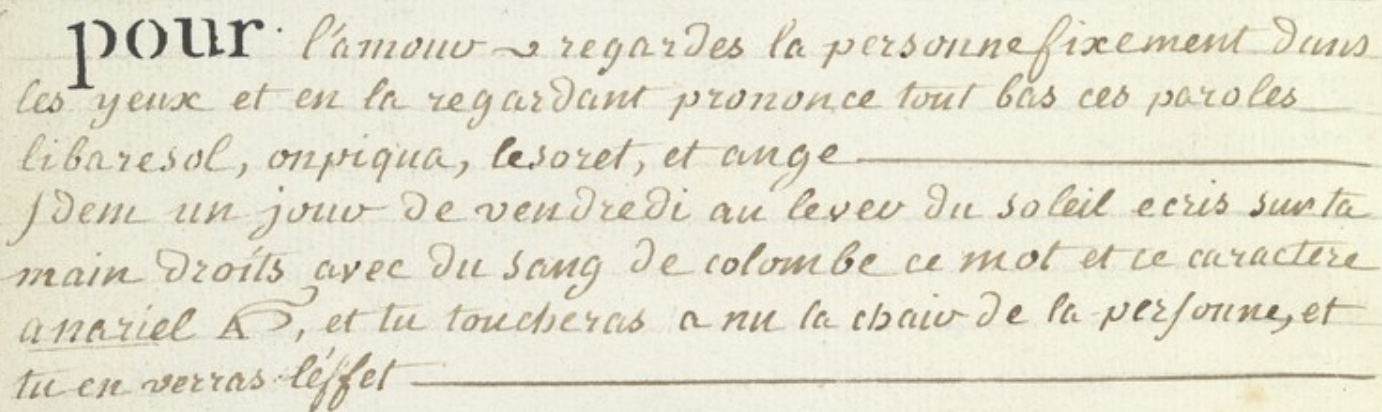 pour l'amour regardes la personne fixement dans
les yeux et en la regardant prononce tout bas ces paroles
libaresol, onpiqua, lesoret, et ange
Idem un jour de vendredi au lever du soleil ecris sur ta
main droits avec du sang de colombe ce mot et ce caractere
anariel A, et tu toucheras a nu la chair de la personne, et
tu en verras l'éffet